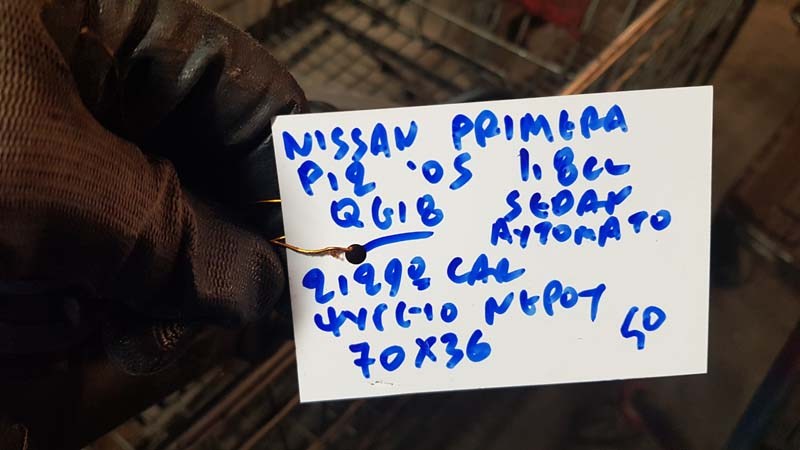 NISSAN PRIMERA
P12 '05 1.8CC
QG18 SEDAN
ΑΥΤΟΜΑΤΟ
ΨΥΓΕΙΟ ΝΕΡΟΥ
70X36 40